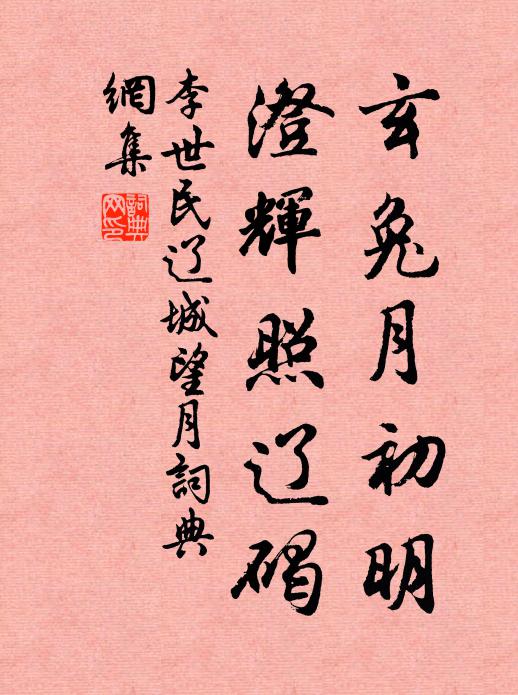 玄兔月初明
澄輝照辽碣
李世民辽城望月詞典
網集
詞典
网印